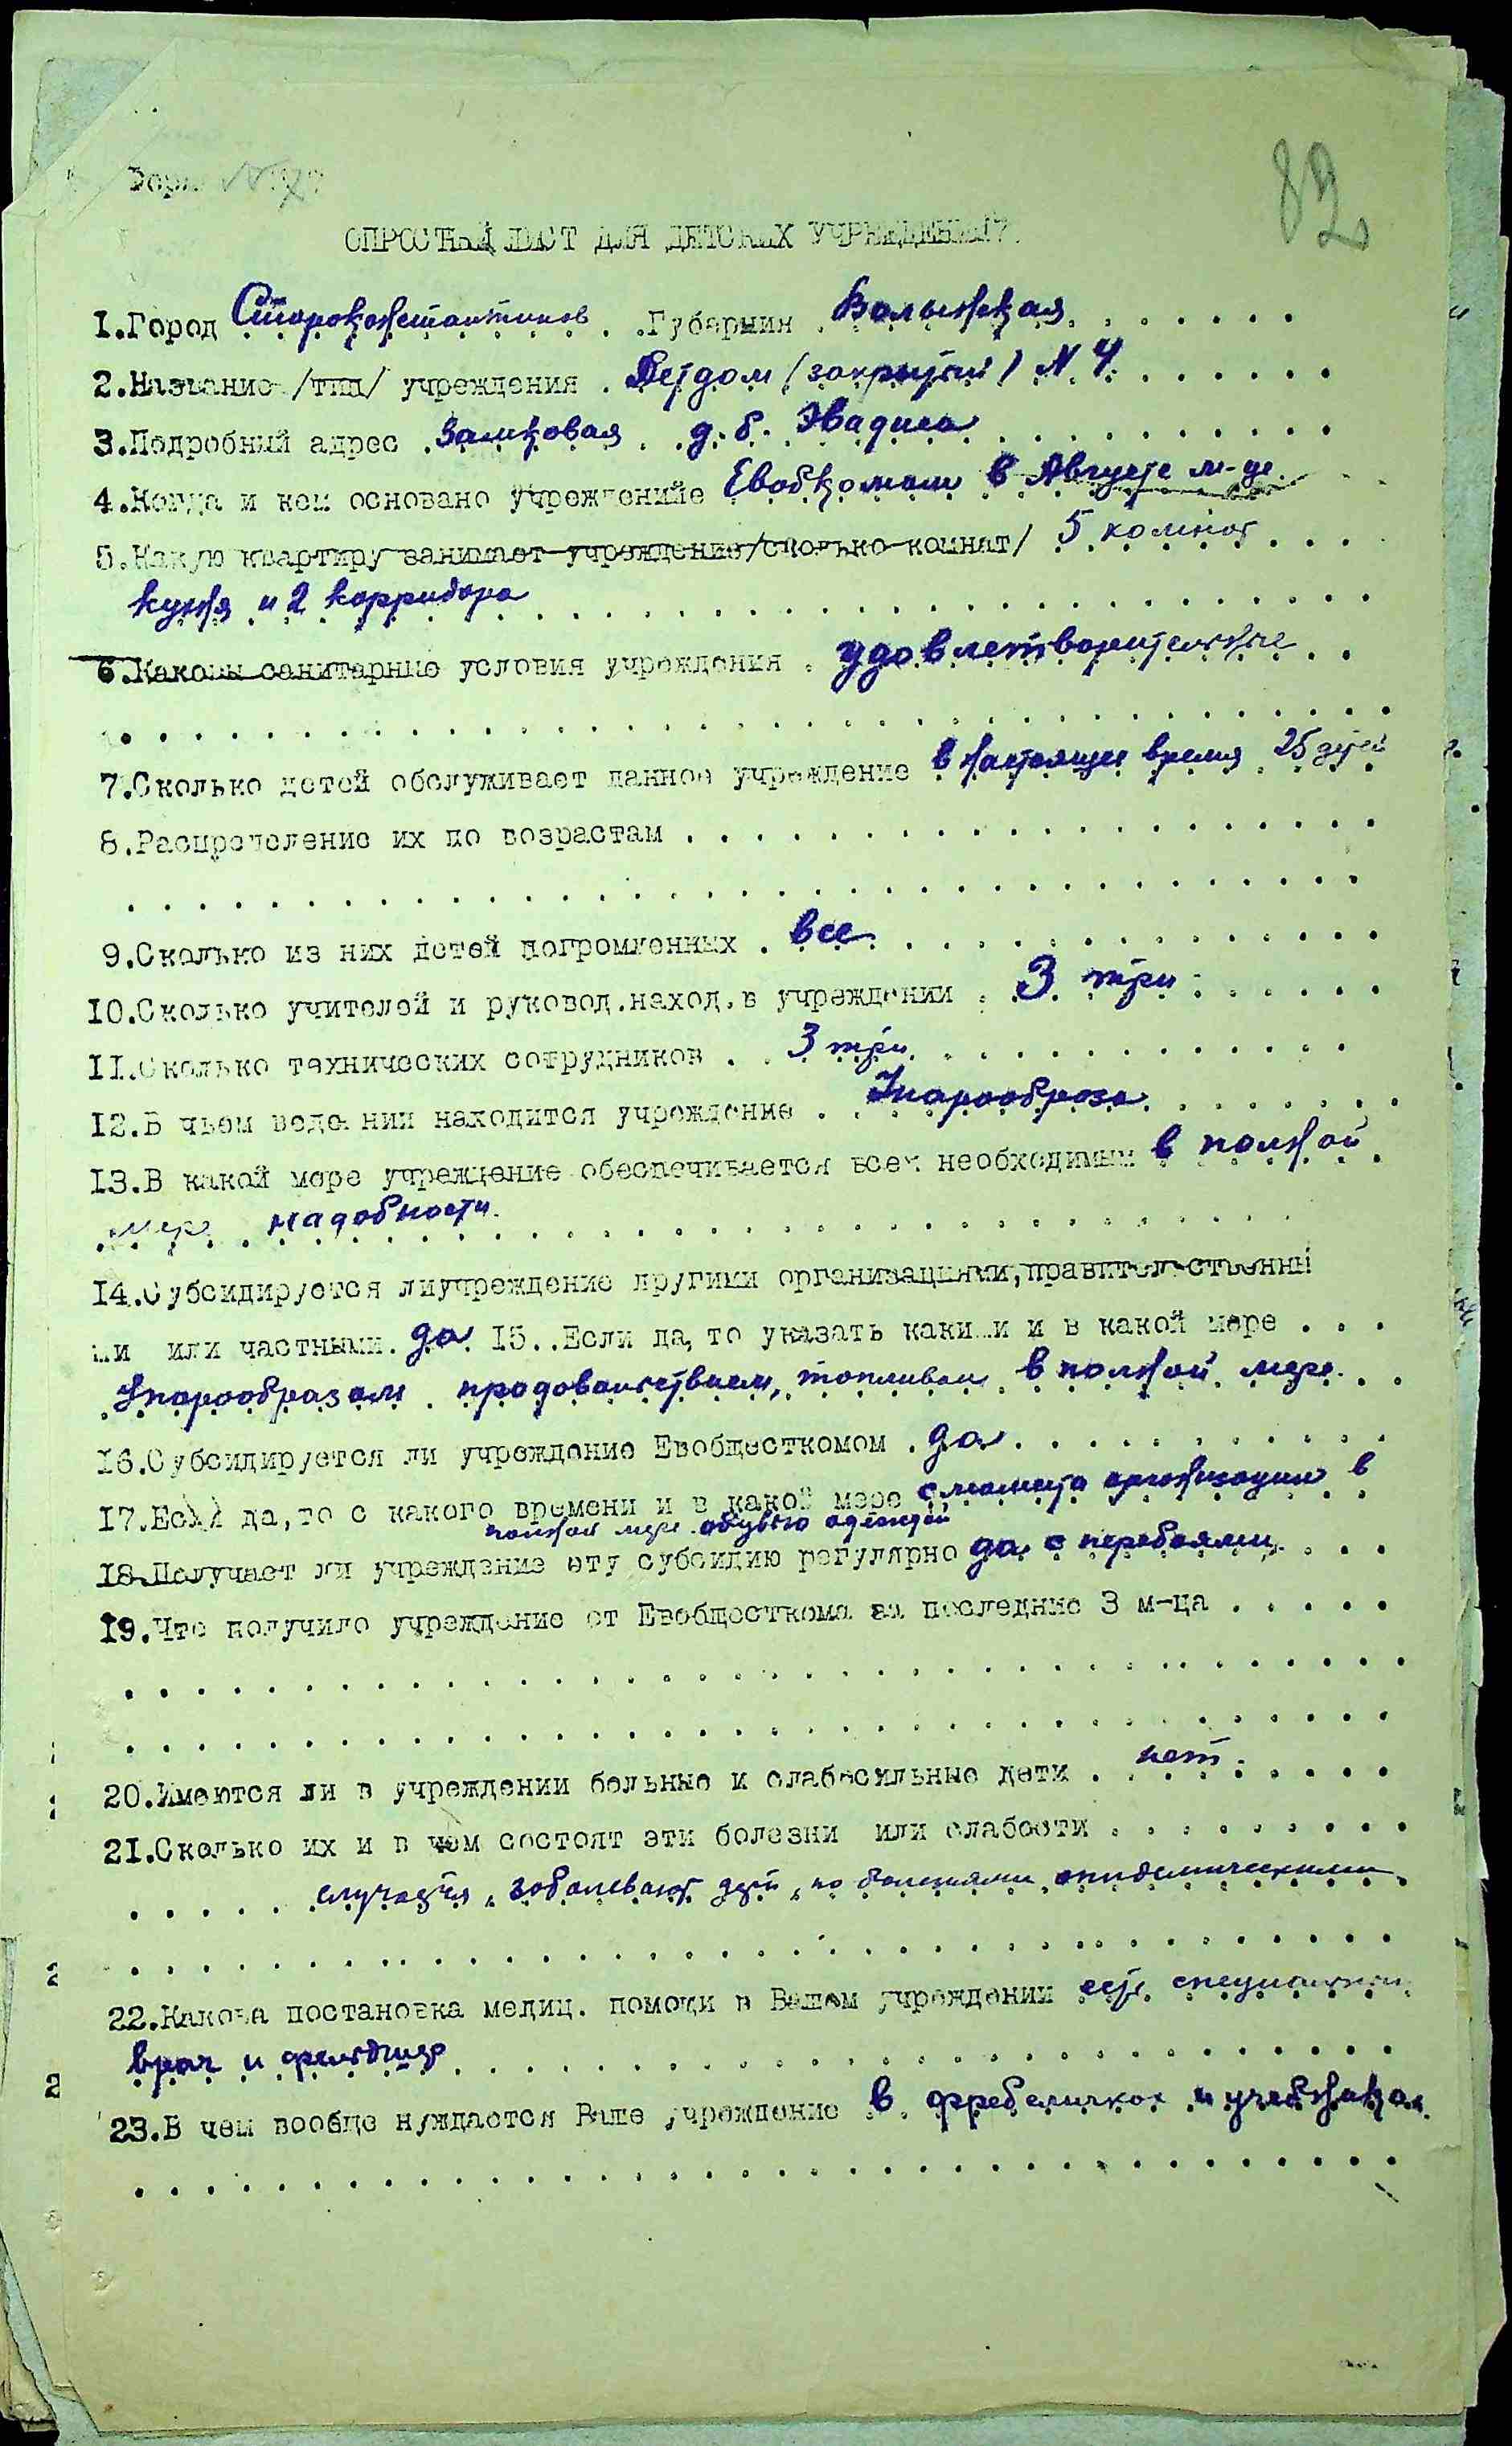 82
Форма №
ОПРОСТНЫЙ ЛИСТ ДЛЯ ДЕТСКИХ УЧРЕЖДЕНИЙ.
1.Город Староконстантинов . .Губерния . Волынская . . . . . . .
2.Название /тип/ учреждения . Детдом (закрытый) N 4 . . . . . .
3.Подробный адрес . Замковая . . д. б. Эвадиса . . . . . . . . . . .
4.Когда и кем основано учреждение Евобкомом в Августе м-це
5.Какую квартиру занимает учреждение/сколько комнат/ 5 комнат . . .
кухня и 2 корридора . . . . . . . . . . . . . . . . . . . . . . . .
6.Каковы санитарные условия учреждения . удовлетворительные . .
. . . . . . . . . . . . . . . . . . . . . . . . . . . . . . . . . . . .
7.Сколько детей обслуживает данное учреждение в настоящее время 25 детей
8.Распределение их по возрастам . . . . . . . . . . . . . . . . . . . .
. . . . . . . . . . . . . . . . . . . . . . . . . . . . . . . . . . .
9.Сколько из них детей погромленных . все . . . . . . . . . . . . . . .
10.Сколько учителей и руковод.наход.в учреждении . 3 три . . . . . .
11.Сколько технических сотрудников . . 3 три . . . . . . . . . . . . .
12.В чьем ведении находится учреждение . . Упарообраза . . . . . . . .
13.В какой мере учреждение обеспечивается всем необходимым в полной
мере надобности . . . . . . . . . . . . . . . . . . . . . . .
14.Субсидируется лиучреждение другими организациями,правительственны
ми или частными. да 15..Если да, то указать какими и в какой мере . . .
Упарообразом . продовольствием, топливом в полной мере . .
16.Субсидируется ли учреждение Евобщесткомом . да . . . . . . . . . . .
17.Если да,то с какого времени и в какой мере с момента организации в
полной мере обувью одеждой
18.Получает ли учреждение эту субсидию регулярно да с перебоями . . .
19.Что получило учреждение от Евобщесткома за последние 3 м-ца . . . . .
. . . . . . . . . . . . . . . . . . . . . . . . . . . . . . . . . . . .
. . . . . . . . . . . . . . . . . . . . . . . . . . . . . . . . . . . .
20.Имеются ли в учреждении больные и слабосильные дети . . нет . . . . .
21.Сколько их и в чем состоят эти болезни или слабости . . . . . . . . .
. . . . . случается, заболевают дети, но болезнями эпидемическими .
. . . . . . . . . . . . . . . . . . . . . . . . . . . . . . . . . . . .
22.Какова постановка медиц. помощи в Вашем учреждении есть специальный
врач и фельдшер . . . . . . . . . . . . . . . . . . . . . . . . . . .
23.В чем вообще нуждается Ваше учреждение в фребеличках и учебниках
. . . . . . . . . . . . . . . . . . . . . . . . . . . . . . . . . . . .